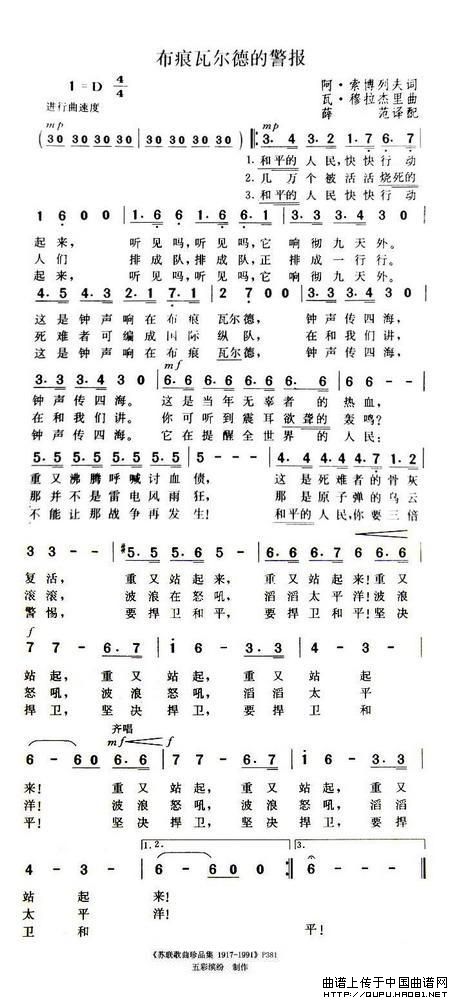 布痕瓦尔德的警报
1=D 4/4
阿·索博列夫词
进行曲速度
瓦·穆拉杰里曲
薛 范译配
mp mp
30 30 30 30 30 30 30 30 3. 4 3. 2 1. 7 6. 7
1. 和平的 人民,快快行动
2. 几万个被活活烧死的
3. 和平的 人民快快行动
1 6 0 0 1. 6 6 1. 6 6. 1 3. 3 3. 4 3 0
起来, 听见吗,听见吗,它 响彻九天外。
人们 排成队,排成队,正 排成一行行。
起来, 听见吗,听见吗,它 响彻九天外。
4. 5 4. 3 2. 1 7. 1 2 7 0 0 3. 3 3. 4 3 0
这是钟声响在布痕 瓦尔德, 钟声传四海,
死难者可编成国际 纵队, 在和我们讲,
这是钟声响在布痕 瓦尔德, 钟声传四海,
mf
3. 3 3. 4 3 0 6. 6 6. 6 6. 6 6. 6 6 6 -
钟声传四海。 这是当年无辜者 的 热血,
在和我们讲。 你可听到震耳欲聋的 轰鸣?
钟声传四海。 它在提醒全世界 的 人民:
5. 5 5. 5 5. 5 5. 5 5 5 - 4. 4 4. 4 4. 7 1. 2
重又沸腾呼喊讨血 债, 这是死难者的骨灰
那并不是雷电风雨 狂, 那是原子弹的乌云
不能让那战争再发 生! 和平的 人民,你要三倍
3 3 - - #5. 5 5. 6 5 - 6. 6 6. 7 6 6. 6
复活, 重又站起来, 重又站起来!重又
滚滚, 波浪在怒吼, 滔滔太平洋!波浪
警惕, 要捍卫和平, 要捍卫和平!坚决
f
7 7 - 6. 7 1 6 - 3. 3 4 - 3 -
站起,重又站起,重又站起
怒吼,波浪怒吼,滔滔太平
捍卫,坚决捍卫,要捍卫和
齐唱
mf f
6 - 6 0 6. 6 7 7 - 6. 7 1 6 - 3. 3
来! 重又站起,重又站起,重又
洋! 波浪怒吼,波浪怒吼,滔滔
平! 坚决捍卫,坚决捍卫,要捍
1. 2. 3.
4 - 3 - 6 - 6 0 0 6 - -
站起来!
太平洋!
卫和 平!
《苏联歌曲珍品集 1917-1991》P381
五彩缤纷 制作
曲谱上传于中国曲谱网
http://QUPU.HAO81.NET